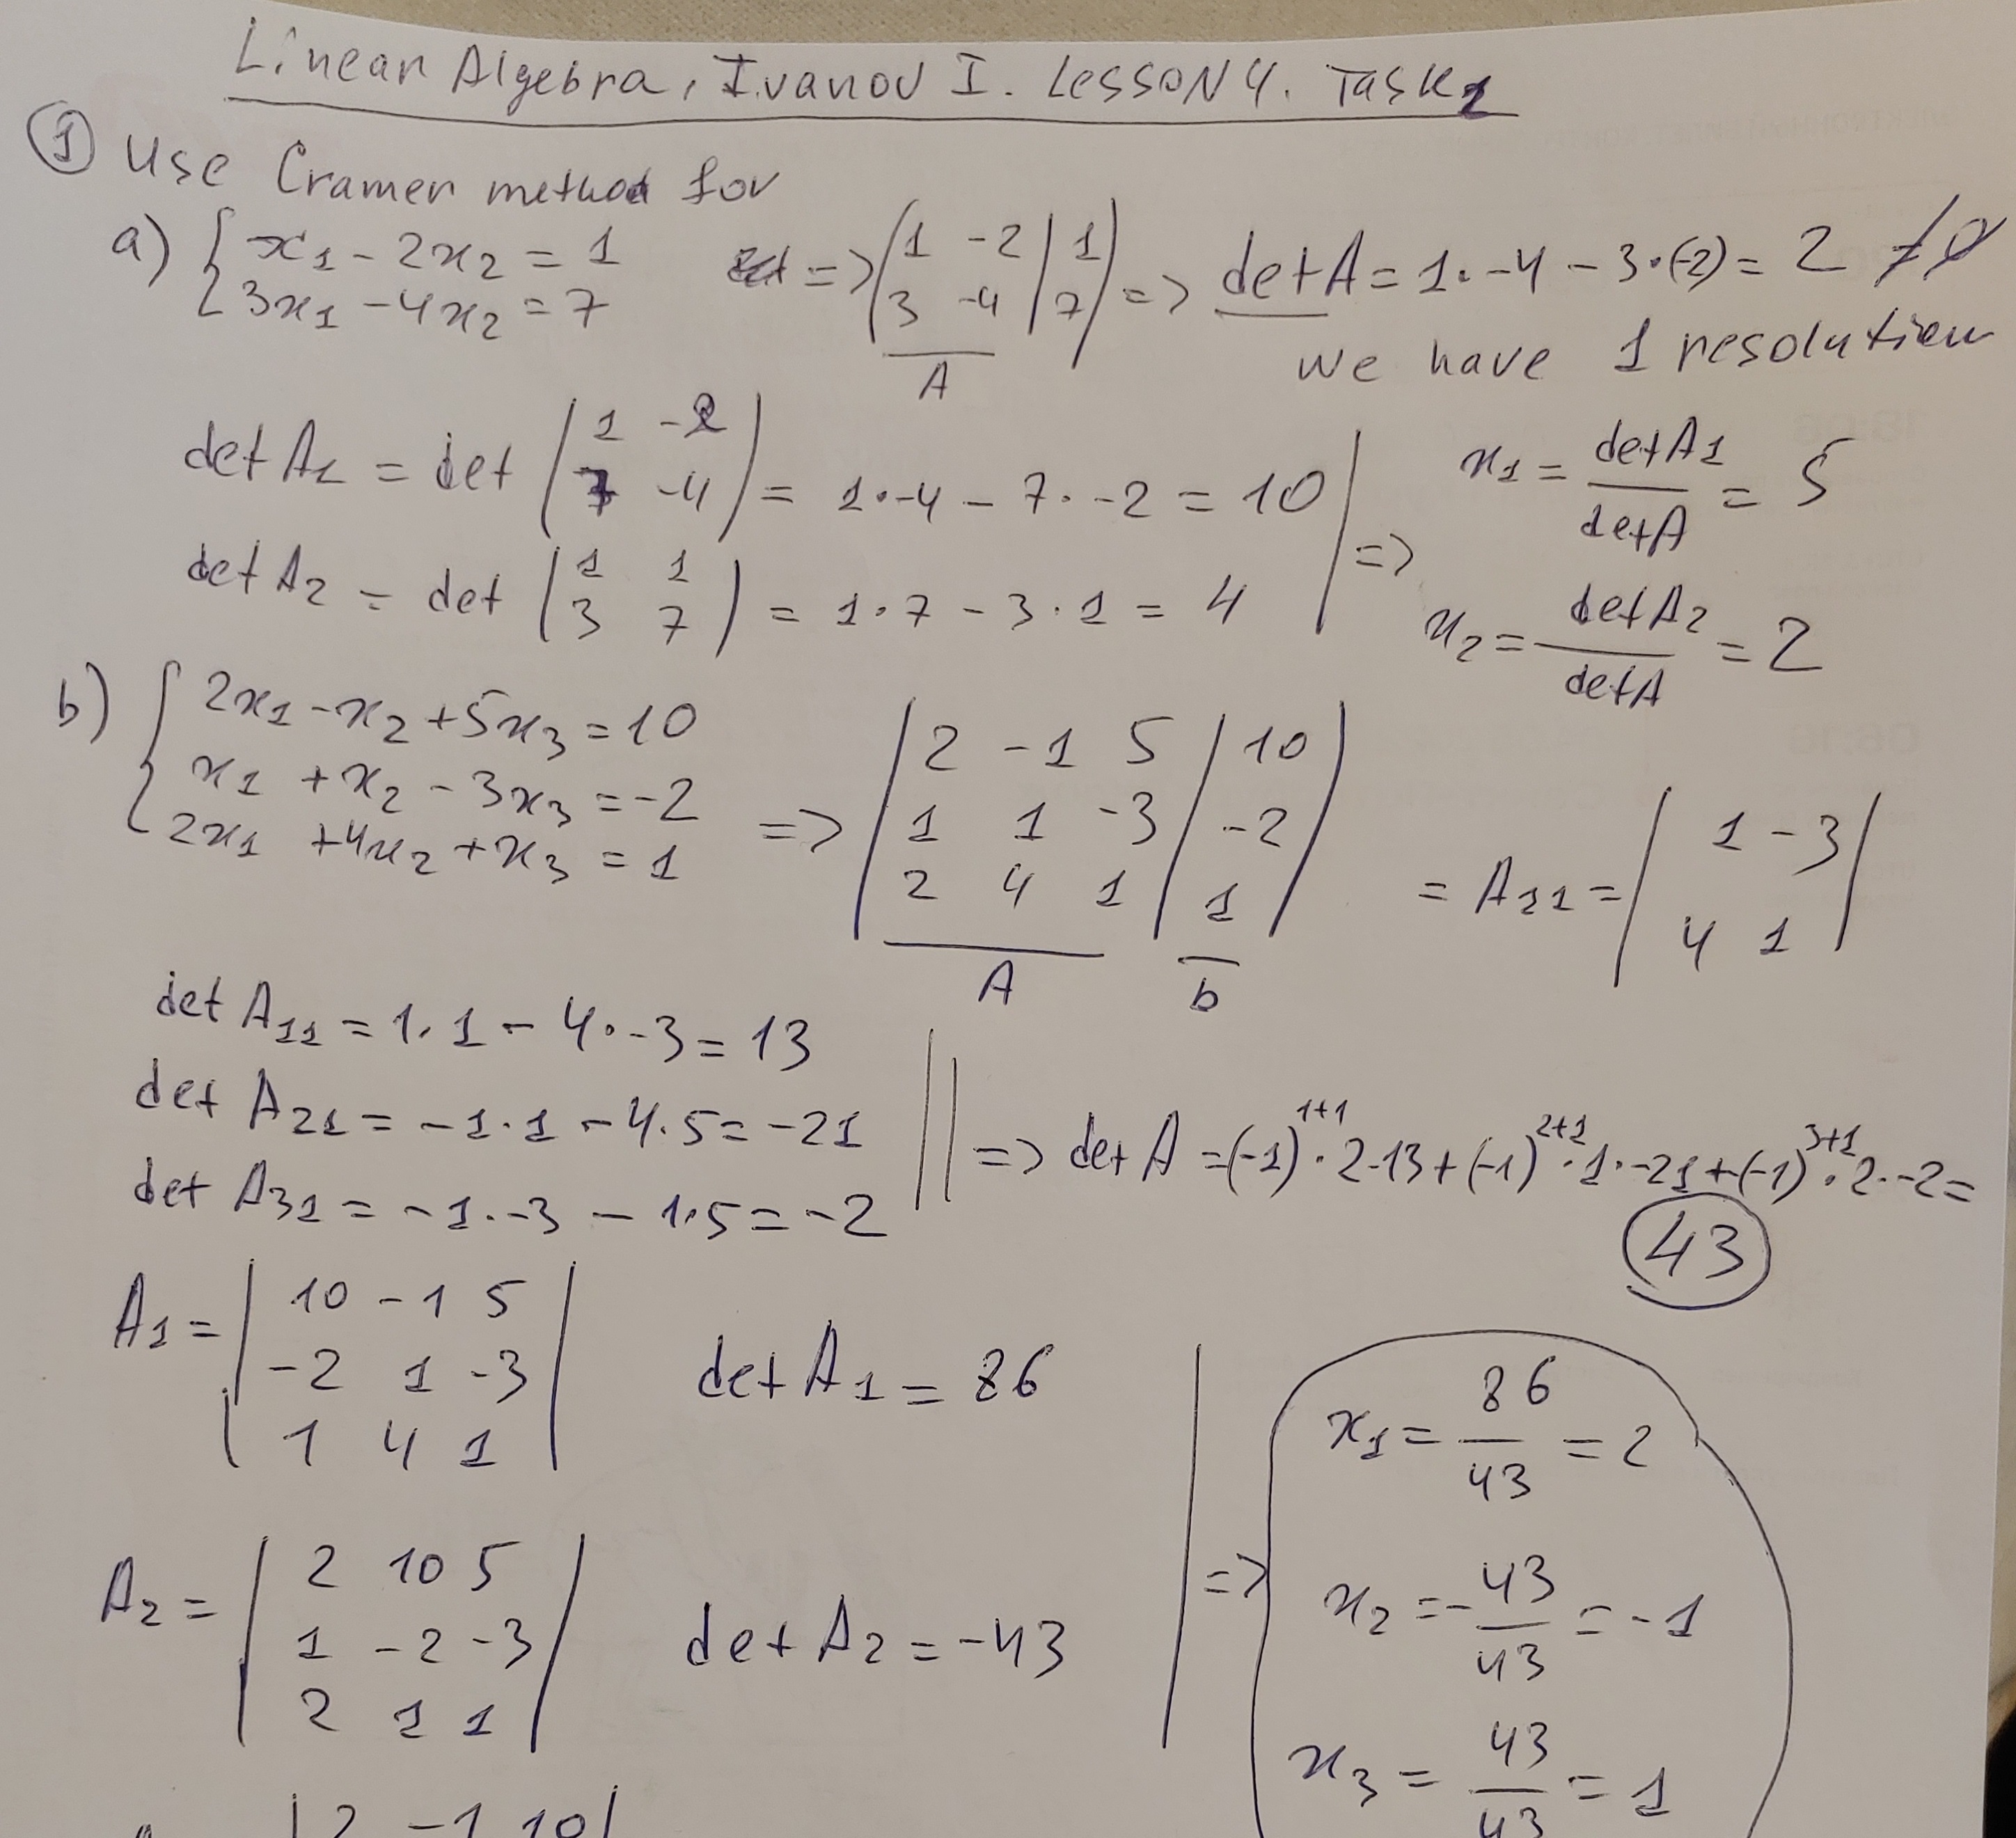 Linear Algebra, Ivanov I. Lesson 4. Task 1
① Use Cramer method for
a) { x₁ - 2x₂ = 1
3x₁ - 4x₂ = 7
=> ( 1 -2 | 1 )
( 3 -4 | 7 )
A
=> det A = 1·-4 - 3·(-2) = 2 ≠ 0
we have 1 resolution
det A₁ = det ( 1 -2
7 -4 ) = 1·-4 - 7·-2 = 10
det A₂ = det ( 1 1
3 7 ) = 1·7 - 3·1 = 4
=> x₁ = det A₁ / det A = 5
x₂ = det A₂ / det A = 2
b) { 2x₁ - x₂ + 5x₃ = 10
x₁ + x₂ - 3x₃ = -2
2x₁ + 4x₂ + x₃ = 1
=> | 2 -1 5 | 10 |
| 1 1 -3 | -2 |
| 2 4 1 | 1 |
A b
= A₁₁ = | 1 -3 |
| 4 1 |
det A₁₁ = 1·1 - 4·-3 = 13
det A₂₁ = -1·1 - 4·5 = -21
det A₃₁ = -1·-3 - 1·5 = -2
=> det A = (-1)¹⁺¹·2·13 + (-1)²⁺¹·1·-21 + (-1)³⁺¹·2·-2 =
43
A₁ = | 10 -1 5 |
| -2 1 -3 |
| 1 4 1 |
det A₁ = 86
A₂ = | 2 10 5 |
| 1 -2 -3 |
| 2 1 1 |
det A₂ = -43
=> x₁ = 86 / 43 = 2
x₂ = - 43 / 43 = -1
x₃ = 43 / 43 = 1
| 2 -1 10 |